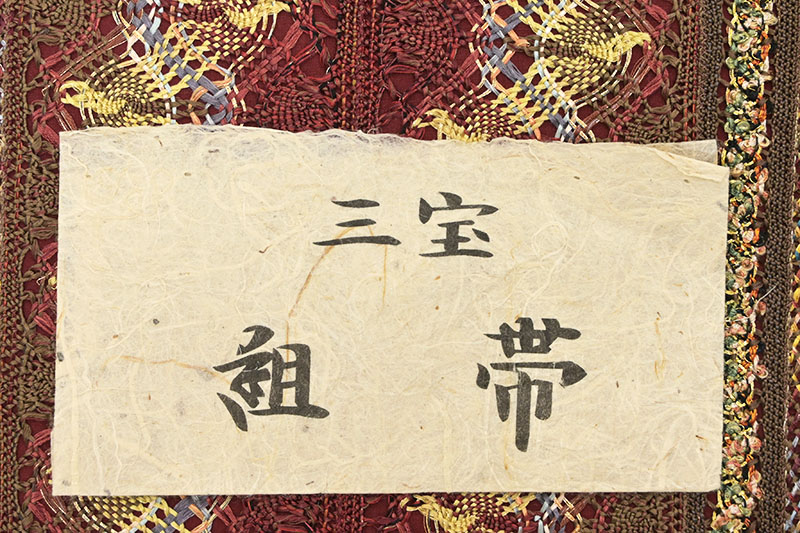 三宝
組帯